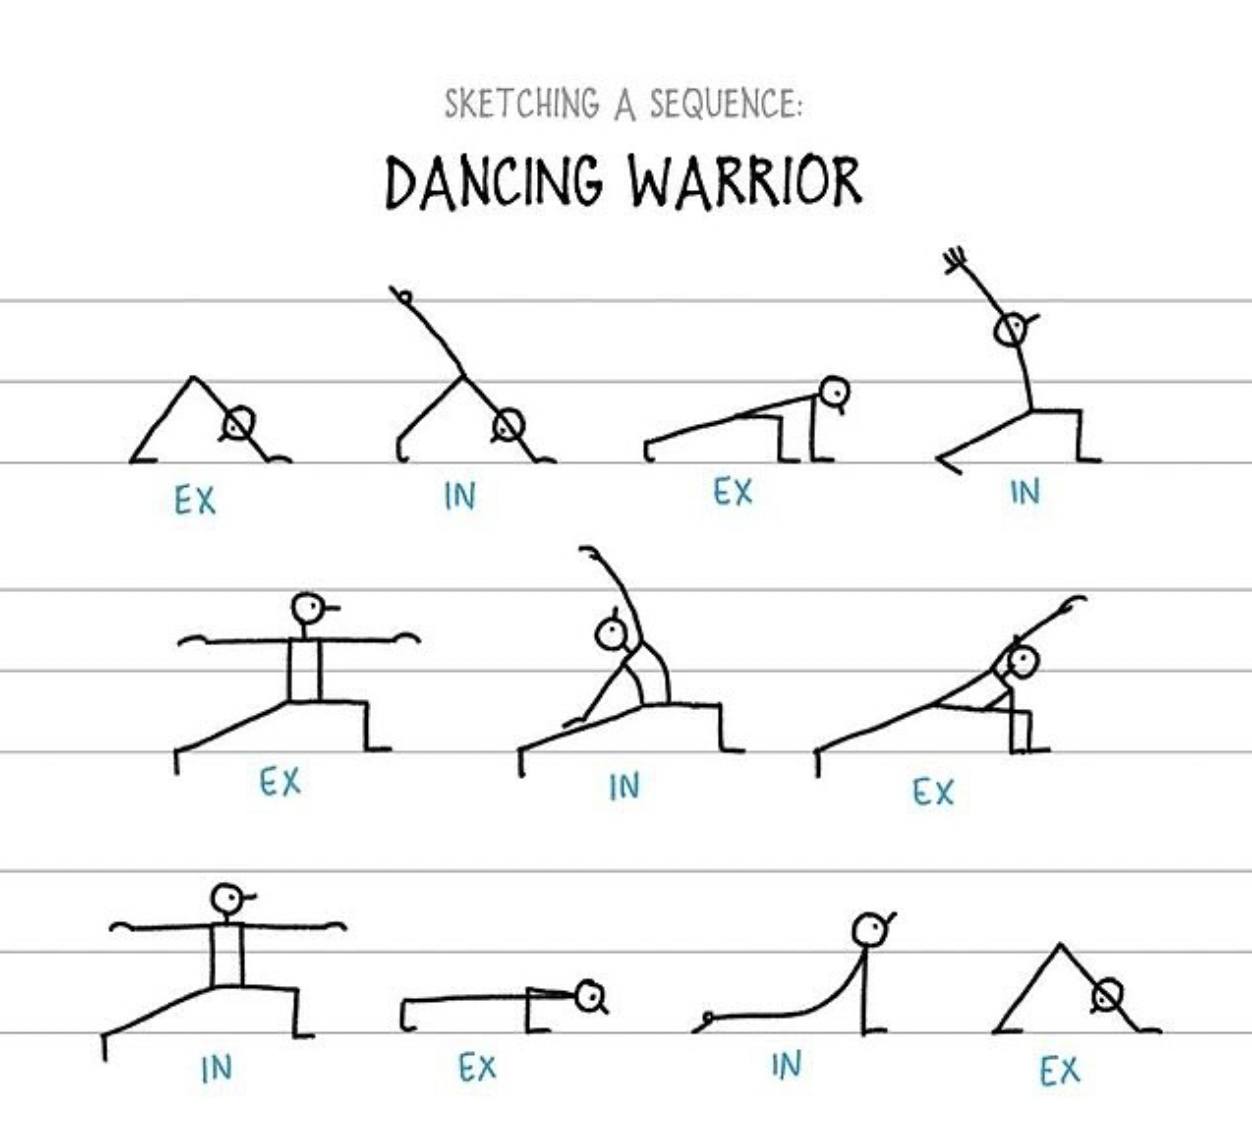 SKETCHING A SEQUENCE:
DANCING WARRIOR
EX IN EX IN
EX IN EX
IN EX IN EX